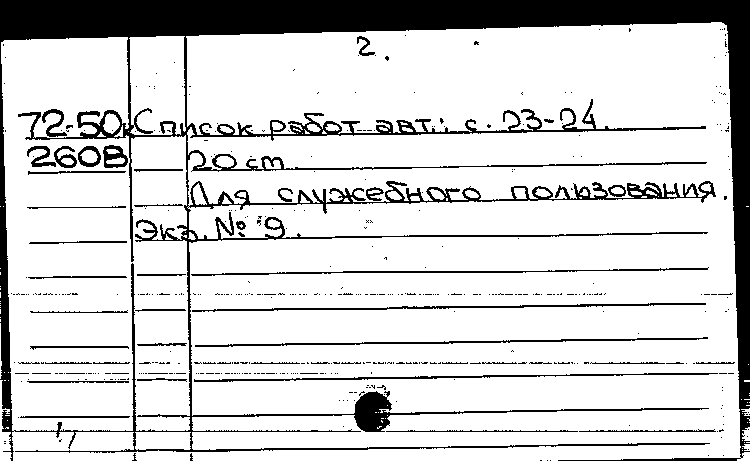 2.
72-50к Список работ авт.: с. 23-24.
260В 20 cm
Для служебного пользования.
Экз. № 9.